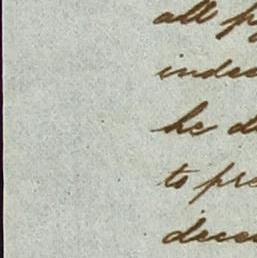 all p
indee
he d
to pre
decen